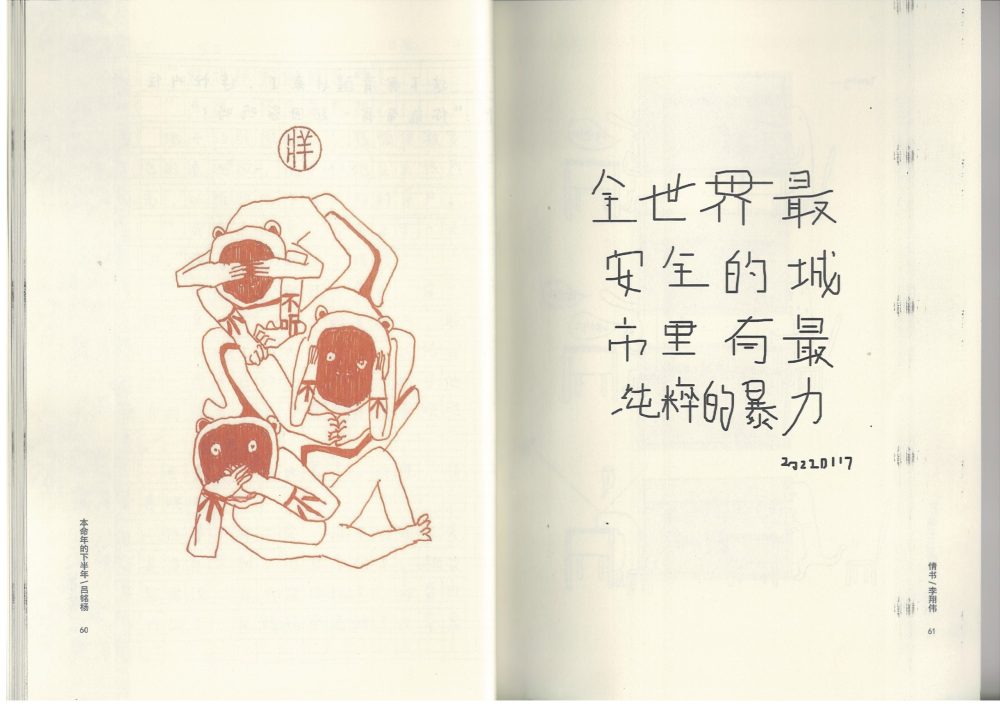 不
不听
不
不
不
不
本命年的下半年 / 吕铭杨
60
全世界最
安全的城
市里有最
纯粹的暴力
20220117
情书 / 李翔伟
61